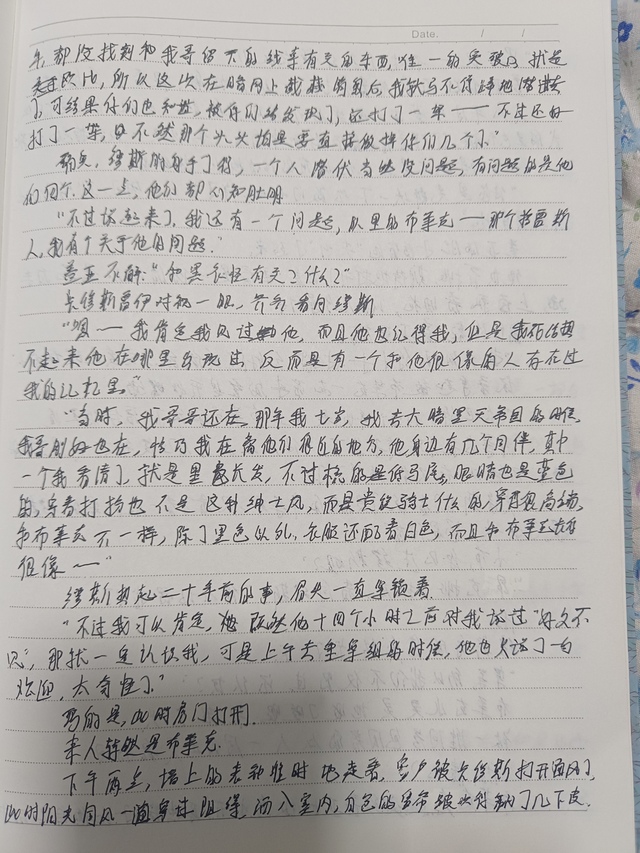 Date. / /
年,都没找到和我哥留下的线索有关的东西,唯一的突破口就是
欧比,所以这次在暗网上截获情报后,我就马不停蹄地潜进
了,可结果你们也知道,被你们给发现了,还打了一架——不过还好
打了一架,要不然那个火火怕是要直接做掉你们几个了。"
确实,缪斯的身手了得,一个人潜伏当然没问题,有问题的是他
们四个,这一点,他们都心知肚明
"不过说起来了,我还有一个问题,队里的布莱克——那个格雷斯
人,我有个关于他的问题。"
盖亚不解:"和黑长怪有关?什么?"
卡修斯雷伊对视一眼,齐齐看向缪斯
"嗯——我肯定我见过他,而且他也记得我,但是我死活想
不起来他在哪里出现过,反而是有一个和他很像的人存在过
我的记忆里。"
"当时,我哥哥还在,那年我七岁,我去大暗黑天帝国的时候,
我哥刚好也在,恰巧我在离他们很近的地方,他身边有几个同伴,其中
一个我看清了,就是黑长发,不过梳的是低马尾,眼睛也是蓝色
的,穿着打扮也不是这种绅士风,而是贵族骑士什么的,穿得很高端,
和布莱克不一样,除了黑色以外,衣服还配着白色,而且和布莱克长得
很像——"
缪斯想起二十年前的事,眉头一直紧锁着
"不过我可以肯定,他既然他十四个小时之前对我说过"好久不
见",那就一定认识我,可是上午去重案组的时候,他也只说了一句
欢迎,太奇怪了。"
巧的是,此时房门打开.
来人赫然是布莱克.
下午两点,墙上的表都准时地走着,窗户被卡修斯打开透风了,
此时阳光同风一道穿过阻碍,洒入室内,白色的窗帘被吹得翻了几下皮.